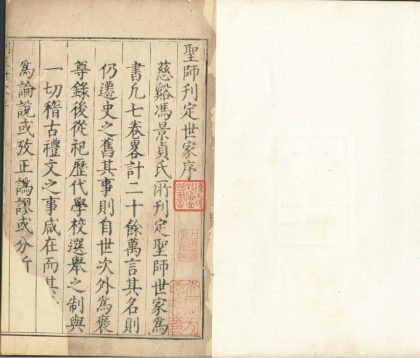 聖師刋定世家序
慈谿馮景貞氏所刋定聖師世家爲
書凢七卷畧計二十餘萬言其名則
仍遷史之舊其事則自世次外爲褒
尊錄後從祀歴代學校選舉之制與
一切稽古禮文之事咸在而其
爲論說或攷正譌謬或分析